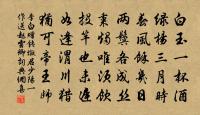 白玉一杯酒
綠楊三月時
春風餘幾日
兩鬢各成絲
秉燭唯須飲
投竿也未遲
如逢渭川獵
猶可帝王師
李白贈錢徵君少陽一
作送趙雲卿詞典網集